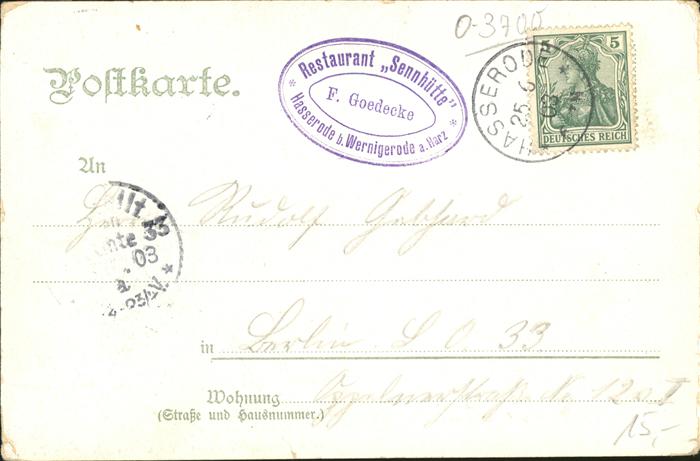 0-3700
Postkarte.
Restaurant „Sennhütte"
F. Goedecke
Hasserode b. Wernigerode a. Harz
HASSERODE
25. 6. 03
5
DEUTSCHES REICH
An
Herrn Rudolf Gebhard
03
in Berlin S O 33
Wohnung Oppelnerstraße No 12
(Straße und Hausnummer.)
15,-